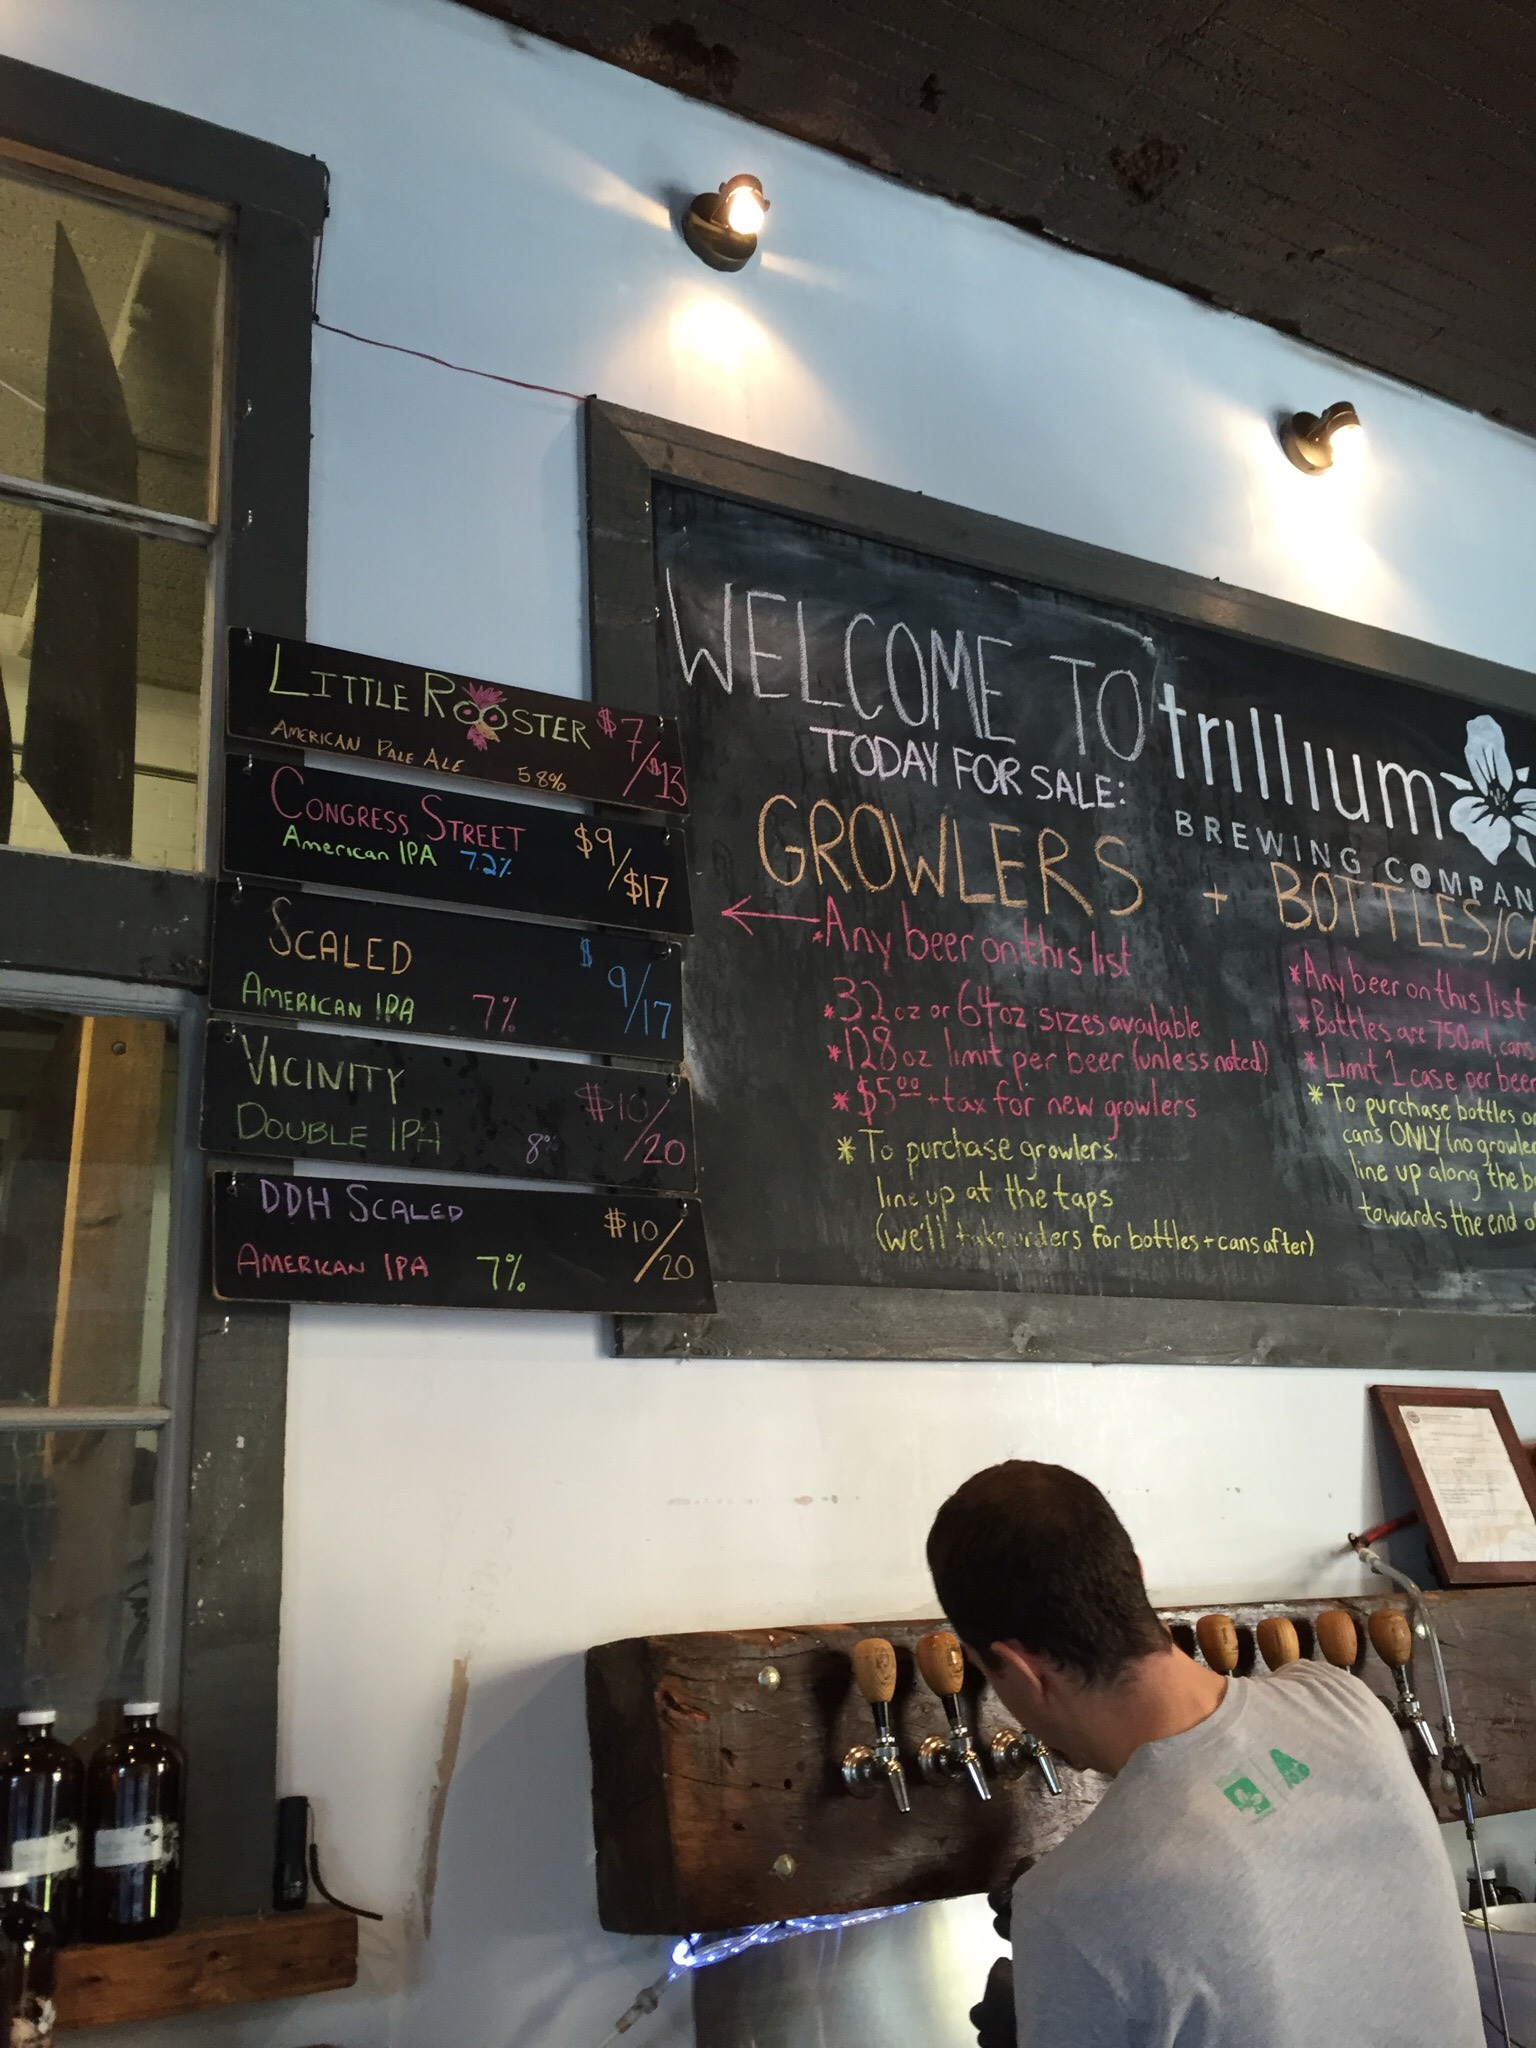 LITTLE ROOSTER $7/$13
AMERICAN PALE ALE 5.8%
CONGRESS STREET $9/$17
American IPA 7.2%
SCALED $9/17
AMERICAN IPA 7%
VICINITY $10/20
DOUBLE IPA 8%
DDH SCALED $10/20
AMERICAN IPA 7%
WELCOME TO trillium
BREWING COMPAN
TODAY FOR SALE:
GROWLERS + BOTTLES/CA
*Any beer on this list
*32oz or 64oz sizes available
*128oz limit per beer (unless noted)
*$5.00 + tax for new growlers
*To purchase growlers
line up at the taps
(we'll take orders for bottles + cans after)
*Any beer on this list
*Bottles are 750ml, cans
*Limit 1 case per beer
*To purchase bottles o
cans ONLY (no growle
line up along the b
towards the end o